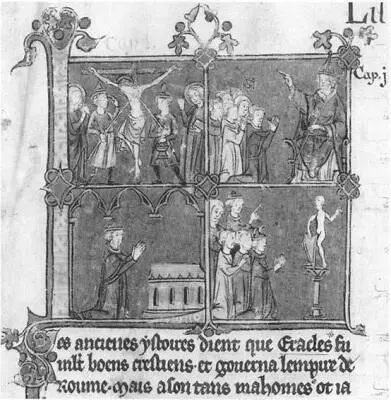 Cap. j
es ancienes ystoires dient que Eracles fu
mlt boens crestiens. et governa lempire de
Roume. mais a son tans mahomes ot ia